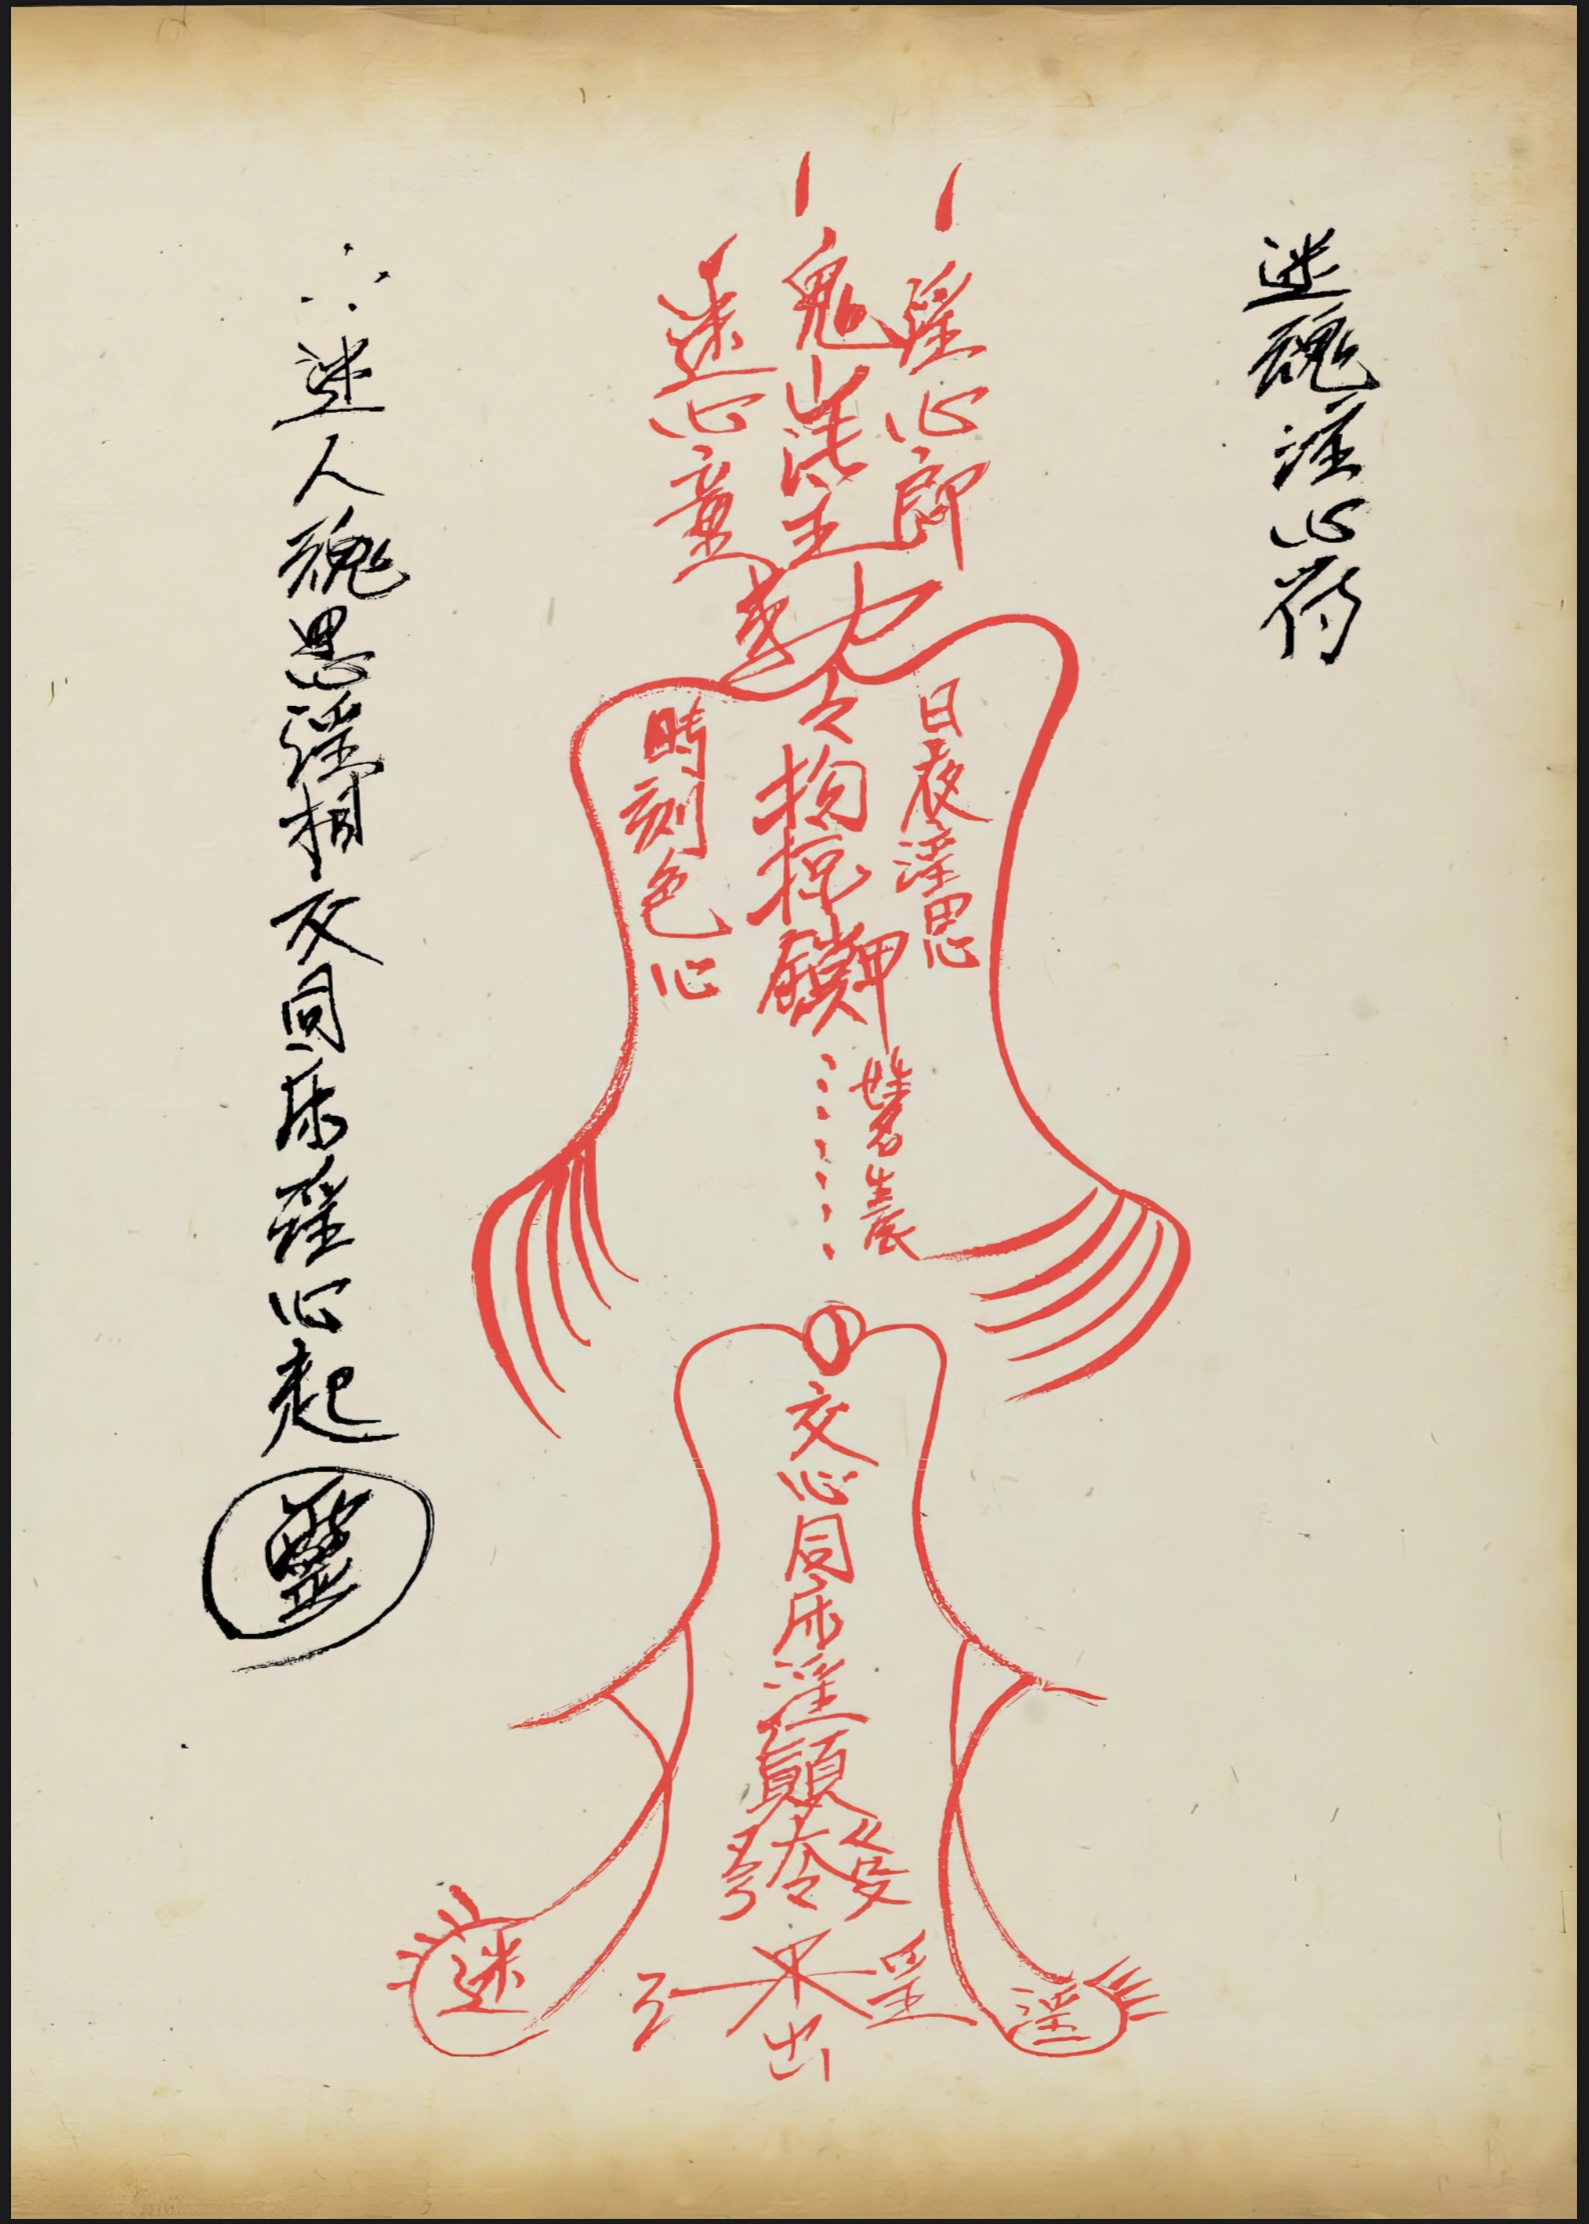 迷魂淫心符
淫心郎
鬼山法主
迷心童
敕
令
日夜淫思
拘
押
時刻色心
姓名生辰
交心同床淫
發
淫
出
迷
淫
迷人魂思淫相交同床淫心起
靈